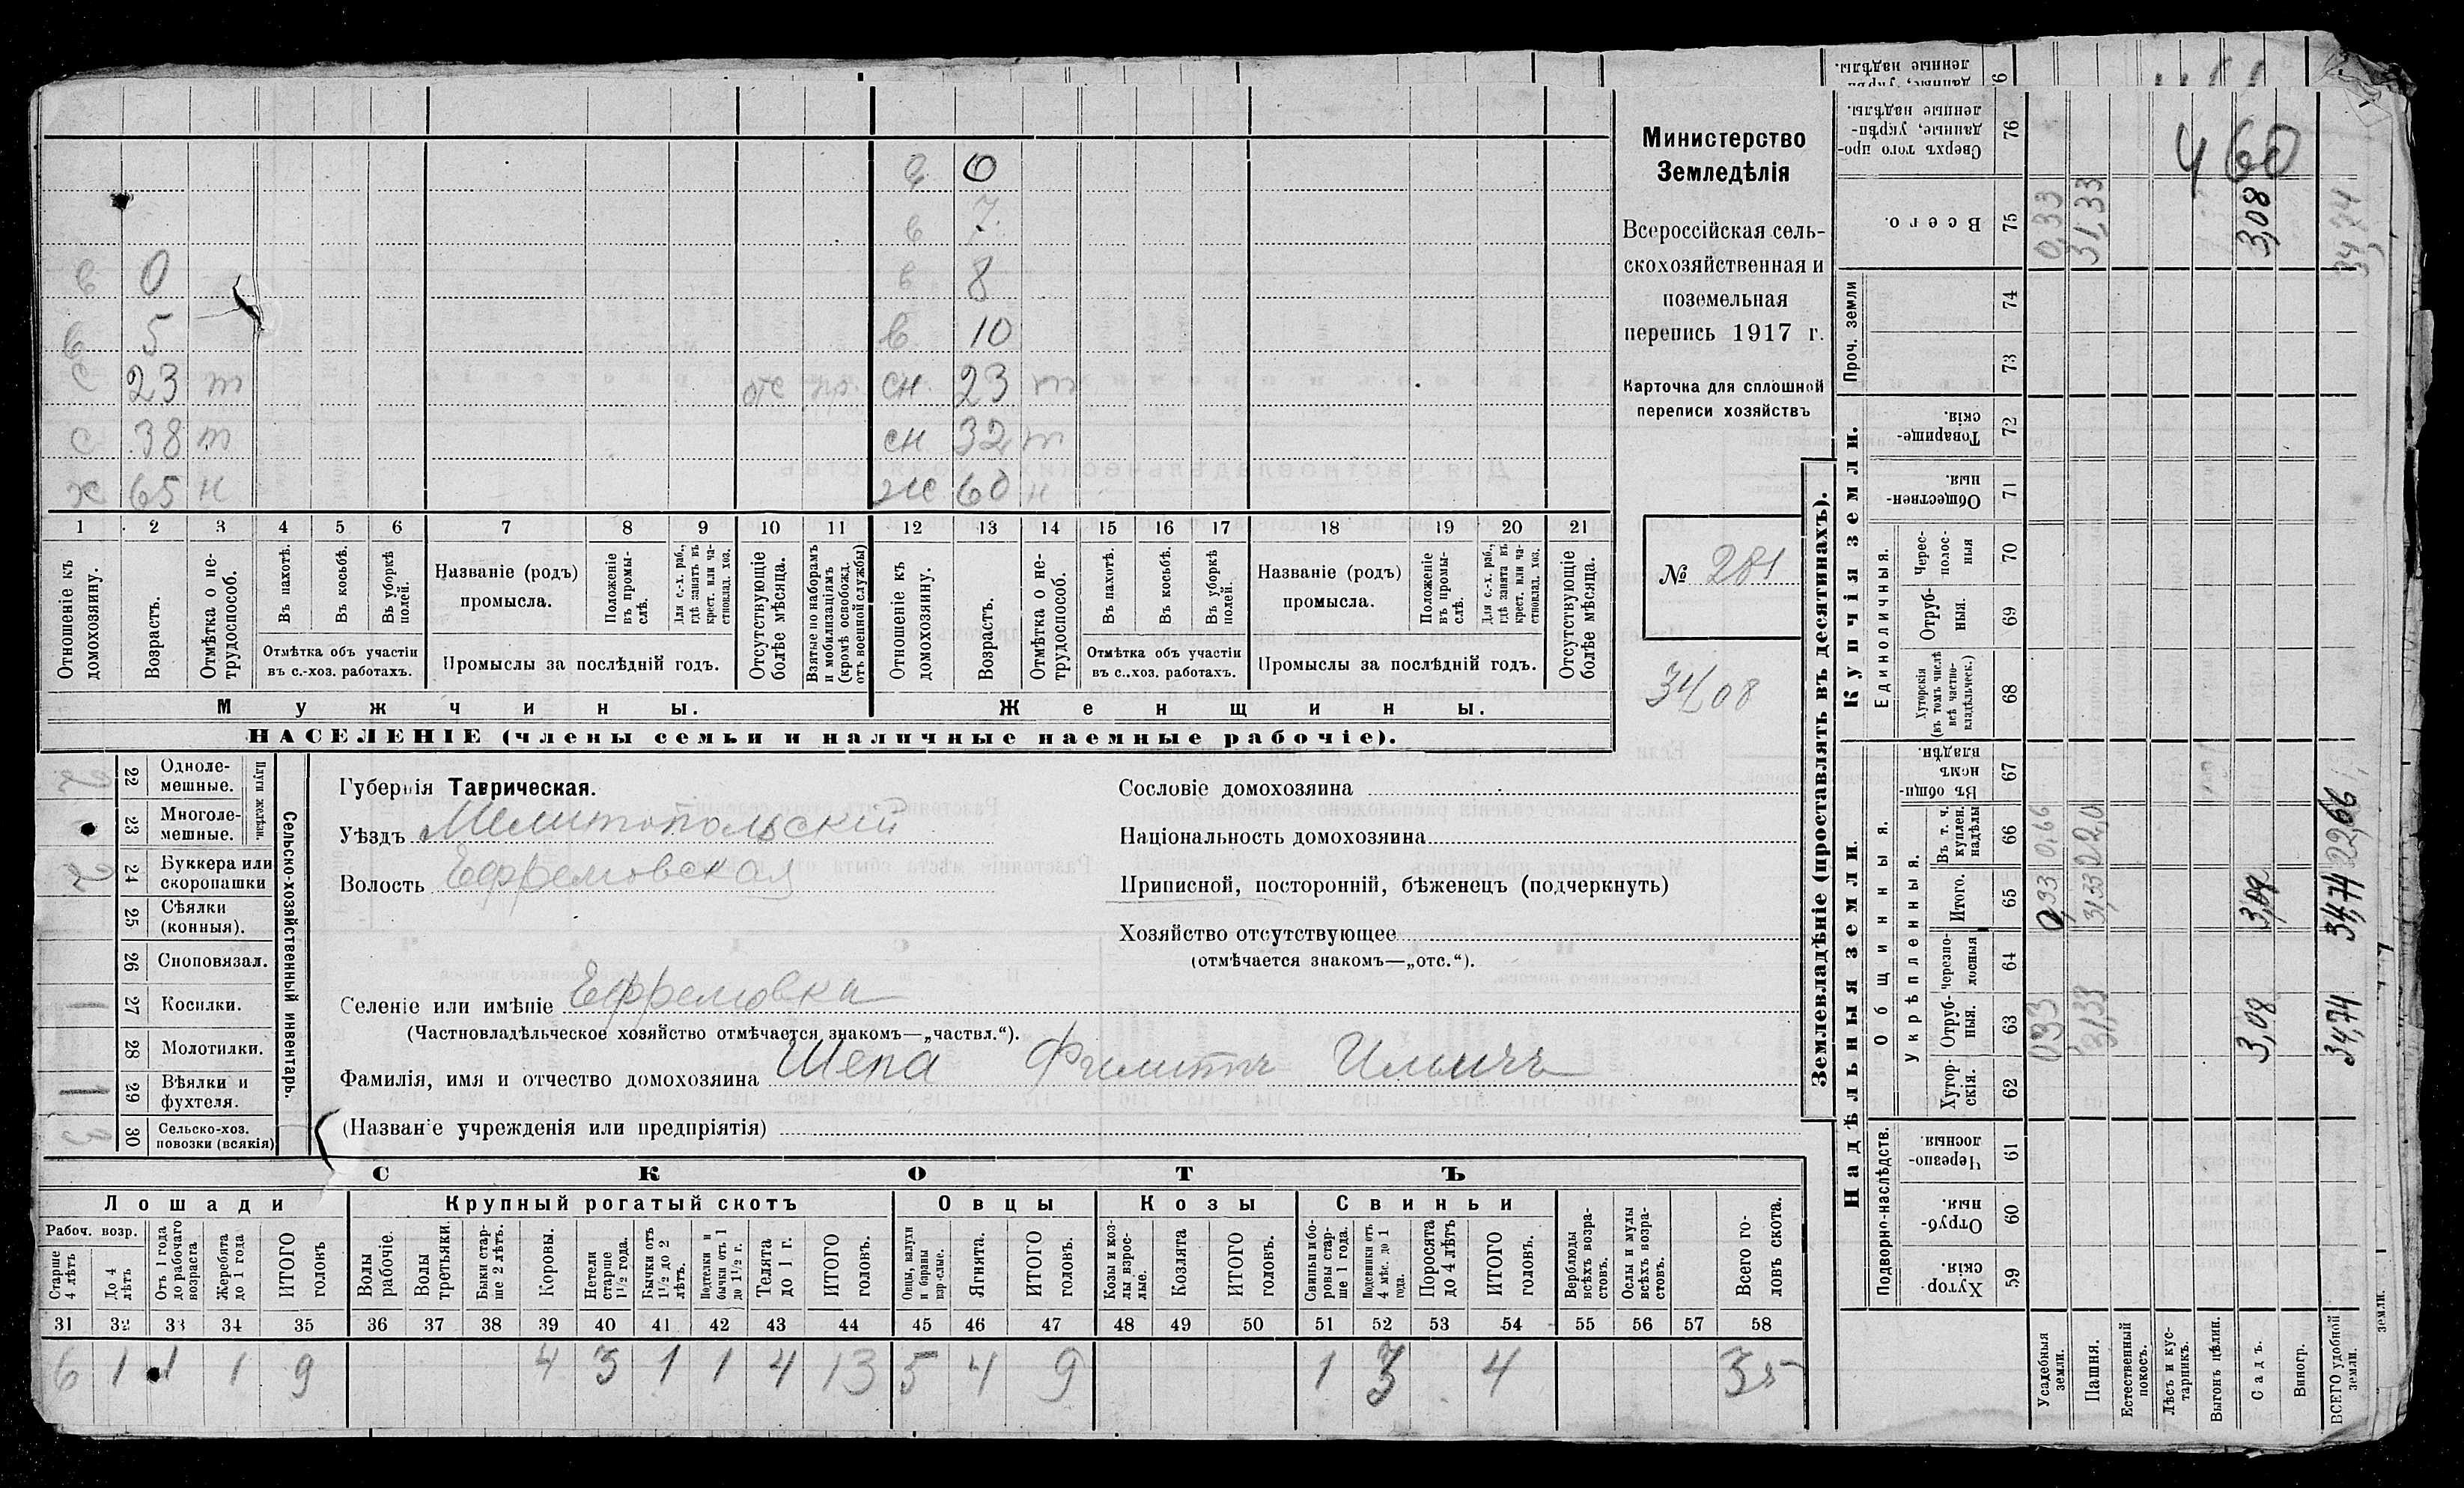 в 0
в 7
в 0 в 8
в 5 в 10
с 23 т отс пр. сн. 23 т
с 38 т сн. 32 т
х 65 н ж 60 н
1 2 3 4 5 6 7 8 9 10 11 12 13 14 15 16 17 18 19 20 21
Отношеніе къ домохозяину.
Возрастъ.
Отмѣтка о нетрудоспособ.
Въ пахотѣ.
Въ косьбѣ.
Въ уборкѣ полей.
Отмѣтка объ участіи въ с.-хоз. работахъ.
Названіе (родъ) промысла.
Положеніе въ промыслѣ.
Для с.-х. раб., гдѣ занятъ въ крест. или частновлад. хоз.
Промыслы за послѣдній годъ.
Отсутствующіе болѣе мѣсяца.
Взятые по наборамъ и мобилизаціямъ (кромѣ освобожд. отъ военной службы)
Отношеніе къ домохозяину.
Возрастъ.
Отмѣтка о нетрудоспособ.
Въ пахотѣ.
Въ косьбѣ.
Въ уборкѣ полей.
Отмѣтка объ участіи въ с.-хоз. работахъ.
Названіе (родъ) промысла.
Положеніе въ промыслѣ.
Для с.-х. раб., гдѣ занята въ крест. или частновлад. хоз.
Промыслы за послѣдній годъ.
Отсутствующіе болѣе мѣсяца.
Мужчины. Женщины.
НАСЕЛЕНІЕ (члены семьи и наличные наемные рабочіе).
Министерство
Земледѣлія
Всероссійская сель-
скохозяйственная и
поземельная
перепись 1917 г.
Карточка для сплошной
переписи хозяйствъ
№ 281
3408
Сельско-хозяйственный инвентарь.
Плуги желѣзн.
22 Одноле-мешные. 2
23 Многоле-мешные.
24 Буккера или скоропашки 2
25 Сѣялки (конныя).
26 Сноповязал.
27 Косилки. 1
28 Молотилки.
29 Вѣялки и фухтеля. 1
30 Сельско-хоз. повозки (всякія) 3
Губернія Таврическая.
Уѣздъ Мелитопольскій
Волость Ефремовская
Селеніе или имѣніе Ефремовка
(Частновладѣльческое хозяйство отмѣчается знакомъ—„частвл.“).
Фамилія, имя и отчество домохозяина Шепа Филиппъ Ильичъ
(Названіе учрежденія или предпріятія)
Сословіе домохозяина
Національность домохозяина
Приписной, посторонній, бѣженецъ (подчеркнуть)
Хозяйство отсутствующее
(отмѣчается знакомъ—„отс.“).
СКОТЪ
Лошади Крупный рогатый скотъ Овцы Козы Свиньи
Рабоч. возр.
Старше 4 лѣтъ
До 4 лѣтъ
Отъ 1 года до рабочаго возраста
Жеребята до 1 года
ИТОГО головъ
Волы рабочіе.
Волы третьяки.
Быки старше 2 лѣтъ.
Коровы.
Нетели старше 1½ года.
Бычки отъ 1½ до 2 лѣтъ.
Подтелки и бычки отъ 1 до 1½ г.
Телята до 1 г.
ИТОГО головъ.
Овцы, валухи и бараны взрослые.
Ягнята.
ИТОГО головъ.
Козы и козлы взрослые.
Козлята
ИТОГО головъ.
Свиньи и боровы старше 1 года.
Подсвинки отъ 4 мѣс. до 1 года.
Поросята до 4 лѣтъ
ИТОГО головъ.
Верблюды всѣхъ возрастовъ.
Ослы и мулы всѣхъ возрастовъ.
Всего головъ скота.
31 32 33 34 35 36 37 38 39 40 41 42 43 44 45 46 47 48 49 50 51 52 53 54 55 56 57 58
6 1 1 1 9 4 3 1 1 4 13 5 4 9 1 3 4 35
Землевладѣніе (проставлять въ десятинахъ).
Надѣльныя земли. Купчія земли.
Подворно-наслѣдств.
Общинныя.
Укрѣпленныя.
Единоличныя.
Проч. земли
59 Хуторскія.
60 Отрубныя.
61 Черезполосныя.
62 Хуторскія.
63 Отрубныя.
64 Черезполосныя
65 Итого.
66 Въ т. ч. куплен. надѣлы
67 Въ общинномъ владѣн.
68 Хуторскія (въ томъ числѣ всѣ частновладѣльческ.)
69 Отрубныя.
70 Чересполосныя
71 Общественныя.
72 Товарищескія.
73
74
75 Всего.
76 Сверхъ того проданные, укрѣпленные надѣлы.
Усадебныя земли. 0,33 0,33 0,66 0,33
Пашня. 31,33 31,33 22,0 31,33
Естественный покосъ.
Лѣсъ и кустарникъ.
Выгонъ цѣлин.
Садъ. 3,08 3,08 3,08
Виногр.
ВСЕГО удобной земли. 34,74 34,74 22,66 34,74
земли.
460